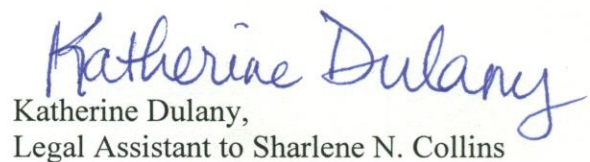 Katherine Dulany
Katherine Dulany,
Legal Assistant to Sharlene N. Collins